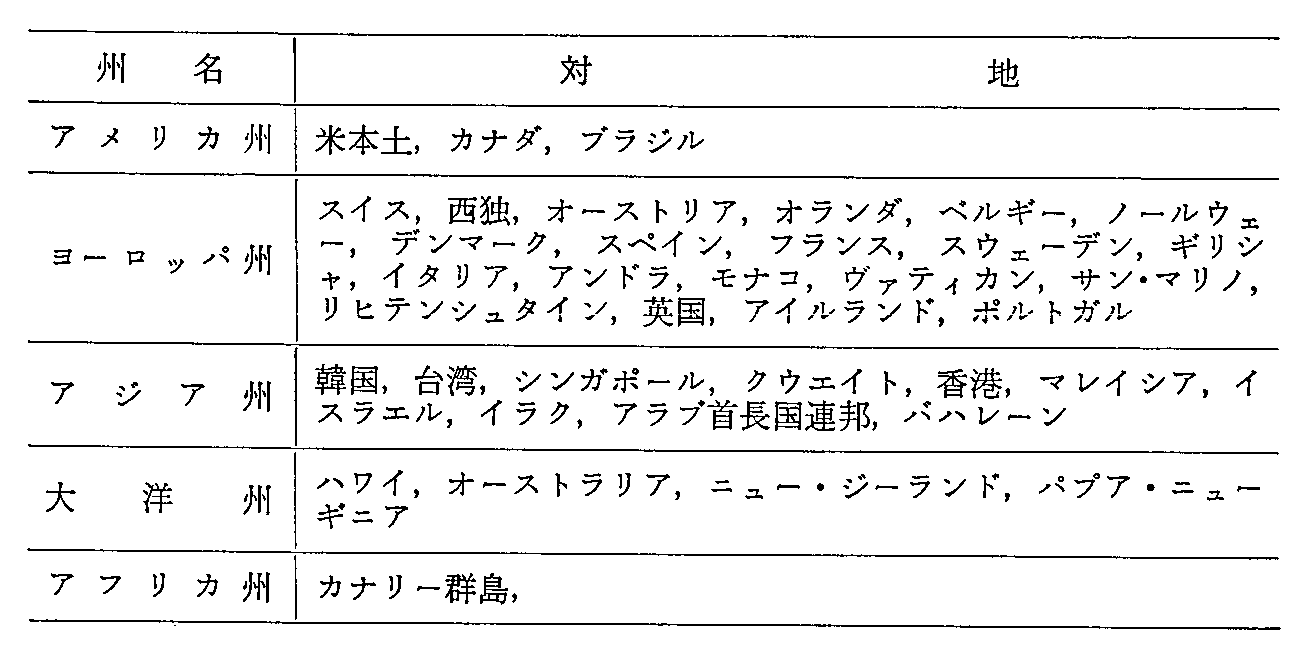 州名 対地
アメリカ州 米本土, カナダ, ブラジル
ヨーロッパ州
スイス, 西独, オーストリア, オランダ, ベルギー, ノールウェ
ー, デンマーク, スペイン, フランス, スウェーデン, ギリシ
ャ, イタリア, アンドラ, モナコ, ヴァティカン, サン・マリノ,
リヒテンシュタイン, 英国, アイルランド, ポルトガル
アジア州
韓国, 台湾, シンガポール, クウエイト, 香港, マレイシア, イ
スラエル, イラク, アラブ首長国連邦, バハレーン
大洋州
ハワイ, オーストラリア, ニュー・ジーランド, パプア・ニュー
ギニア
アフリカ州 カナリー群島,